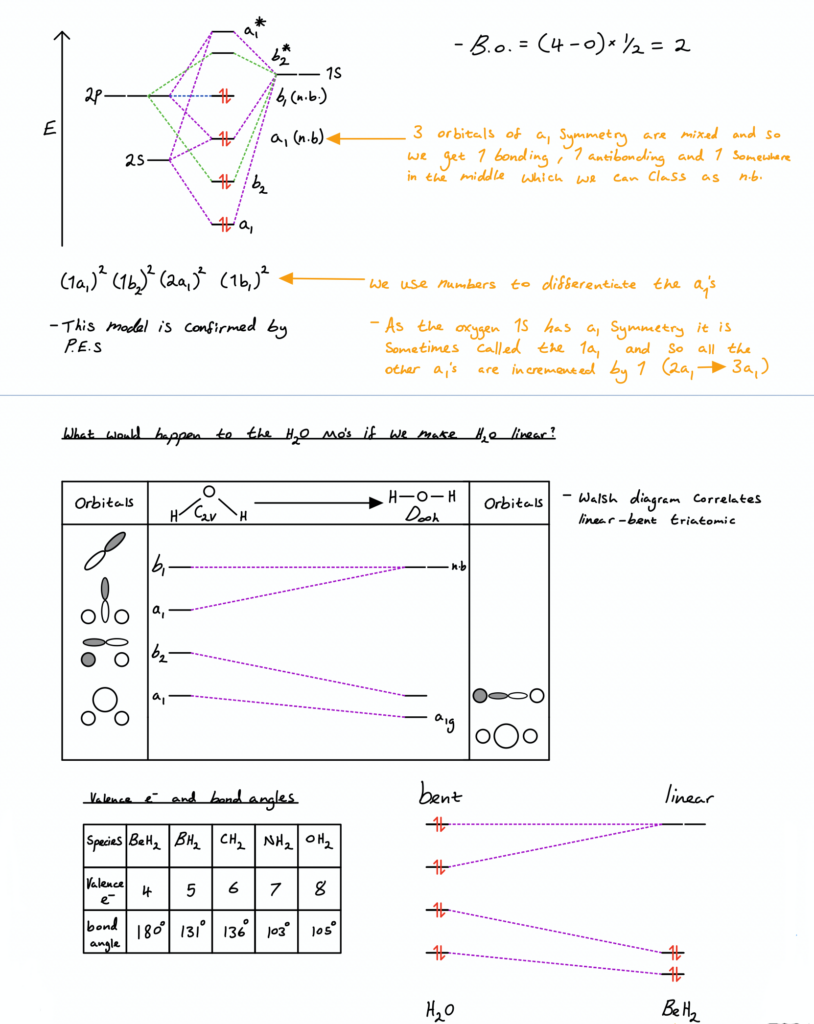 a₁*
- B.o. = (4-0) × 1/2 = 2
b₂*
1S
2p
b₁ (n.b.)
E
a₁ (n.b)
3 orbitals of a₁ symmetry are mixed and so
we get 1 bonding, 1 antibonding and 1 somewhere
in the middle which we can class as n.b.
2S
b₂
a₁
(1a₁)² (1b₂)² (2a₁)² (1b₁)²
We use numbers to differentiate the a₁'s
- This model is confirmed by
P.E.S
- As the oxygen 1S has a₁ symmetry it is
sometimes called the 1a₁ and so all the
other a₁'s are incremented by 1 (2a₁ → 3a₁)
What would happen to the H₂O MO's if we make H₂O linear?
Orbitals
O
H C₂ᵥ H
H-O-H
D∞h
Orbitals
- Walsh diagram correlates
linear-bent triatomic
b₁
n.b
a₁
b₂
a₁
a₁g
Valence e⁻ and bond angles
bent
linear
Species BeH₂ BH₂ CH₂ NH₂ OH₂
Valence e⁻ 4 5 6 7 8
bond angle 180° 131° 136° 103° 105°
H₂O
BeH₂